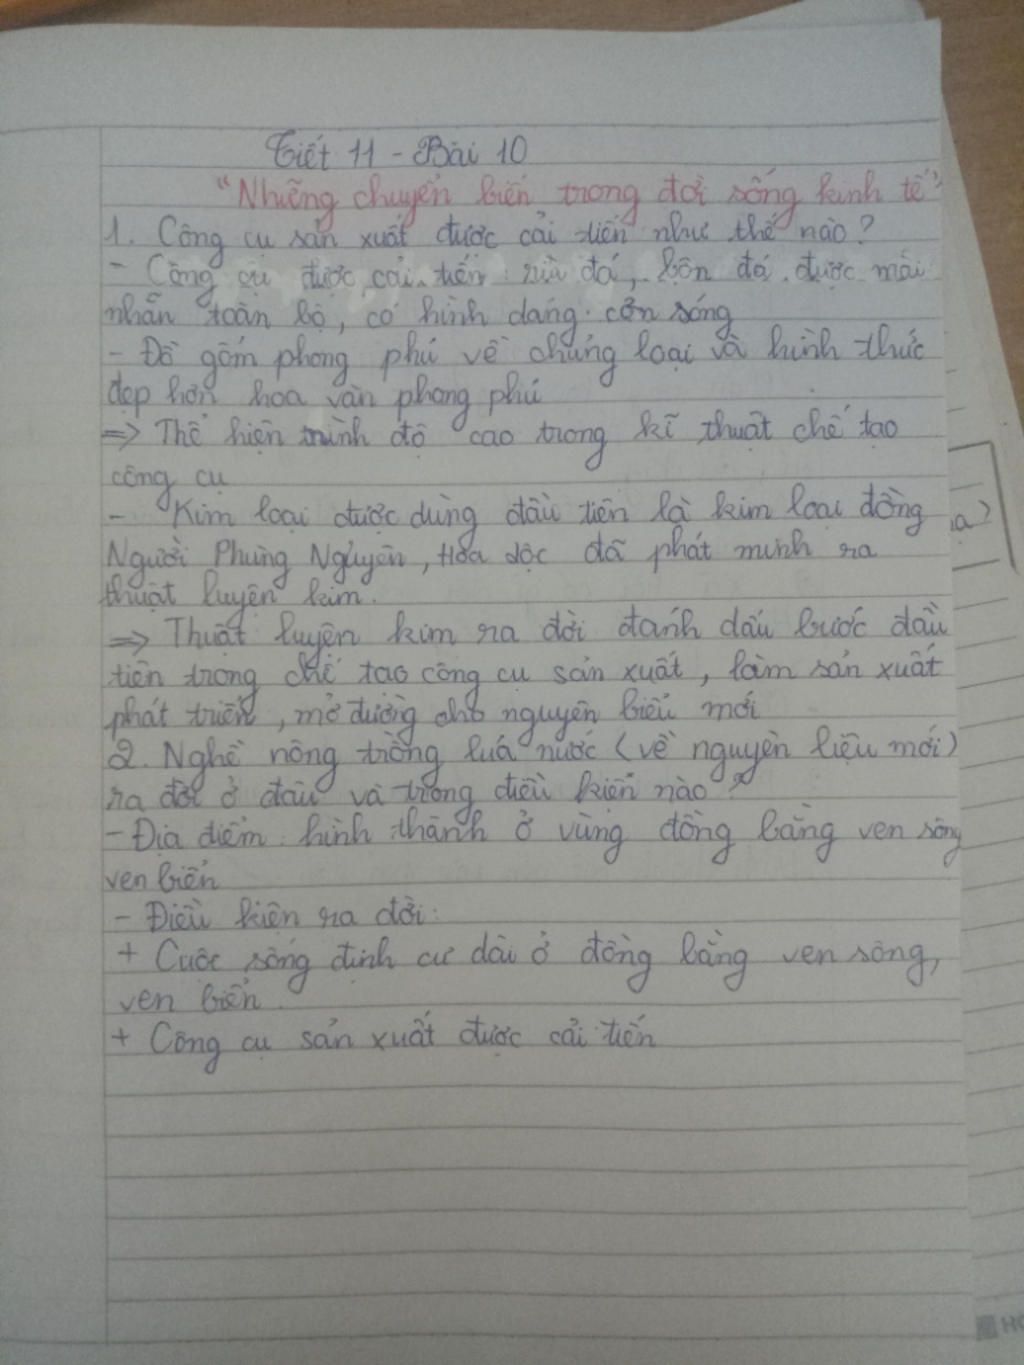 Tiết 11 - Bài 10
"Những chuyển biến trong đời sống kinh tế"
1. Công cụ sản xuất được cải tiến như thế nào?
- Công cụ được cải tiến: rìu đá, bôn đá được mài
nhẵn toàn bộ, có hình dáng cân sóng
- Đồ gốm phong phú về chủng loại và hình thức
đẹp hơn hoa văn phong phú
=> Thể hiện trình độ cao trong kĩ thuật chế tạo
công cụ
- Kim loại được dùng đầu tiên là kim loại đồng
Người Phùng Nguyên, Hoa Lộc đã phát minh ra
thuật luyện kim.
=> Thuật luyện kim ra đời đánh dấu bước đầu
tiên trong chế tạo công cụ sản xuất, làm sản xuất
phát triển, mở đường cho nguyên biểu mới
2. Nghề nông trồng luá nước (về nguyên liệu mới)
ra đời ở đâu và trong điều kiện nào?
- Địa điểm: hình thành ở vùng đồng bằng ven sông
ven biển
- Điều kiện ra đời:
+ Cuộc sống định cư dài ở đồng bằng ven sông,
ven biển.
+ Công cụ sản xuất được cải tiến